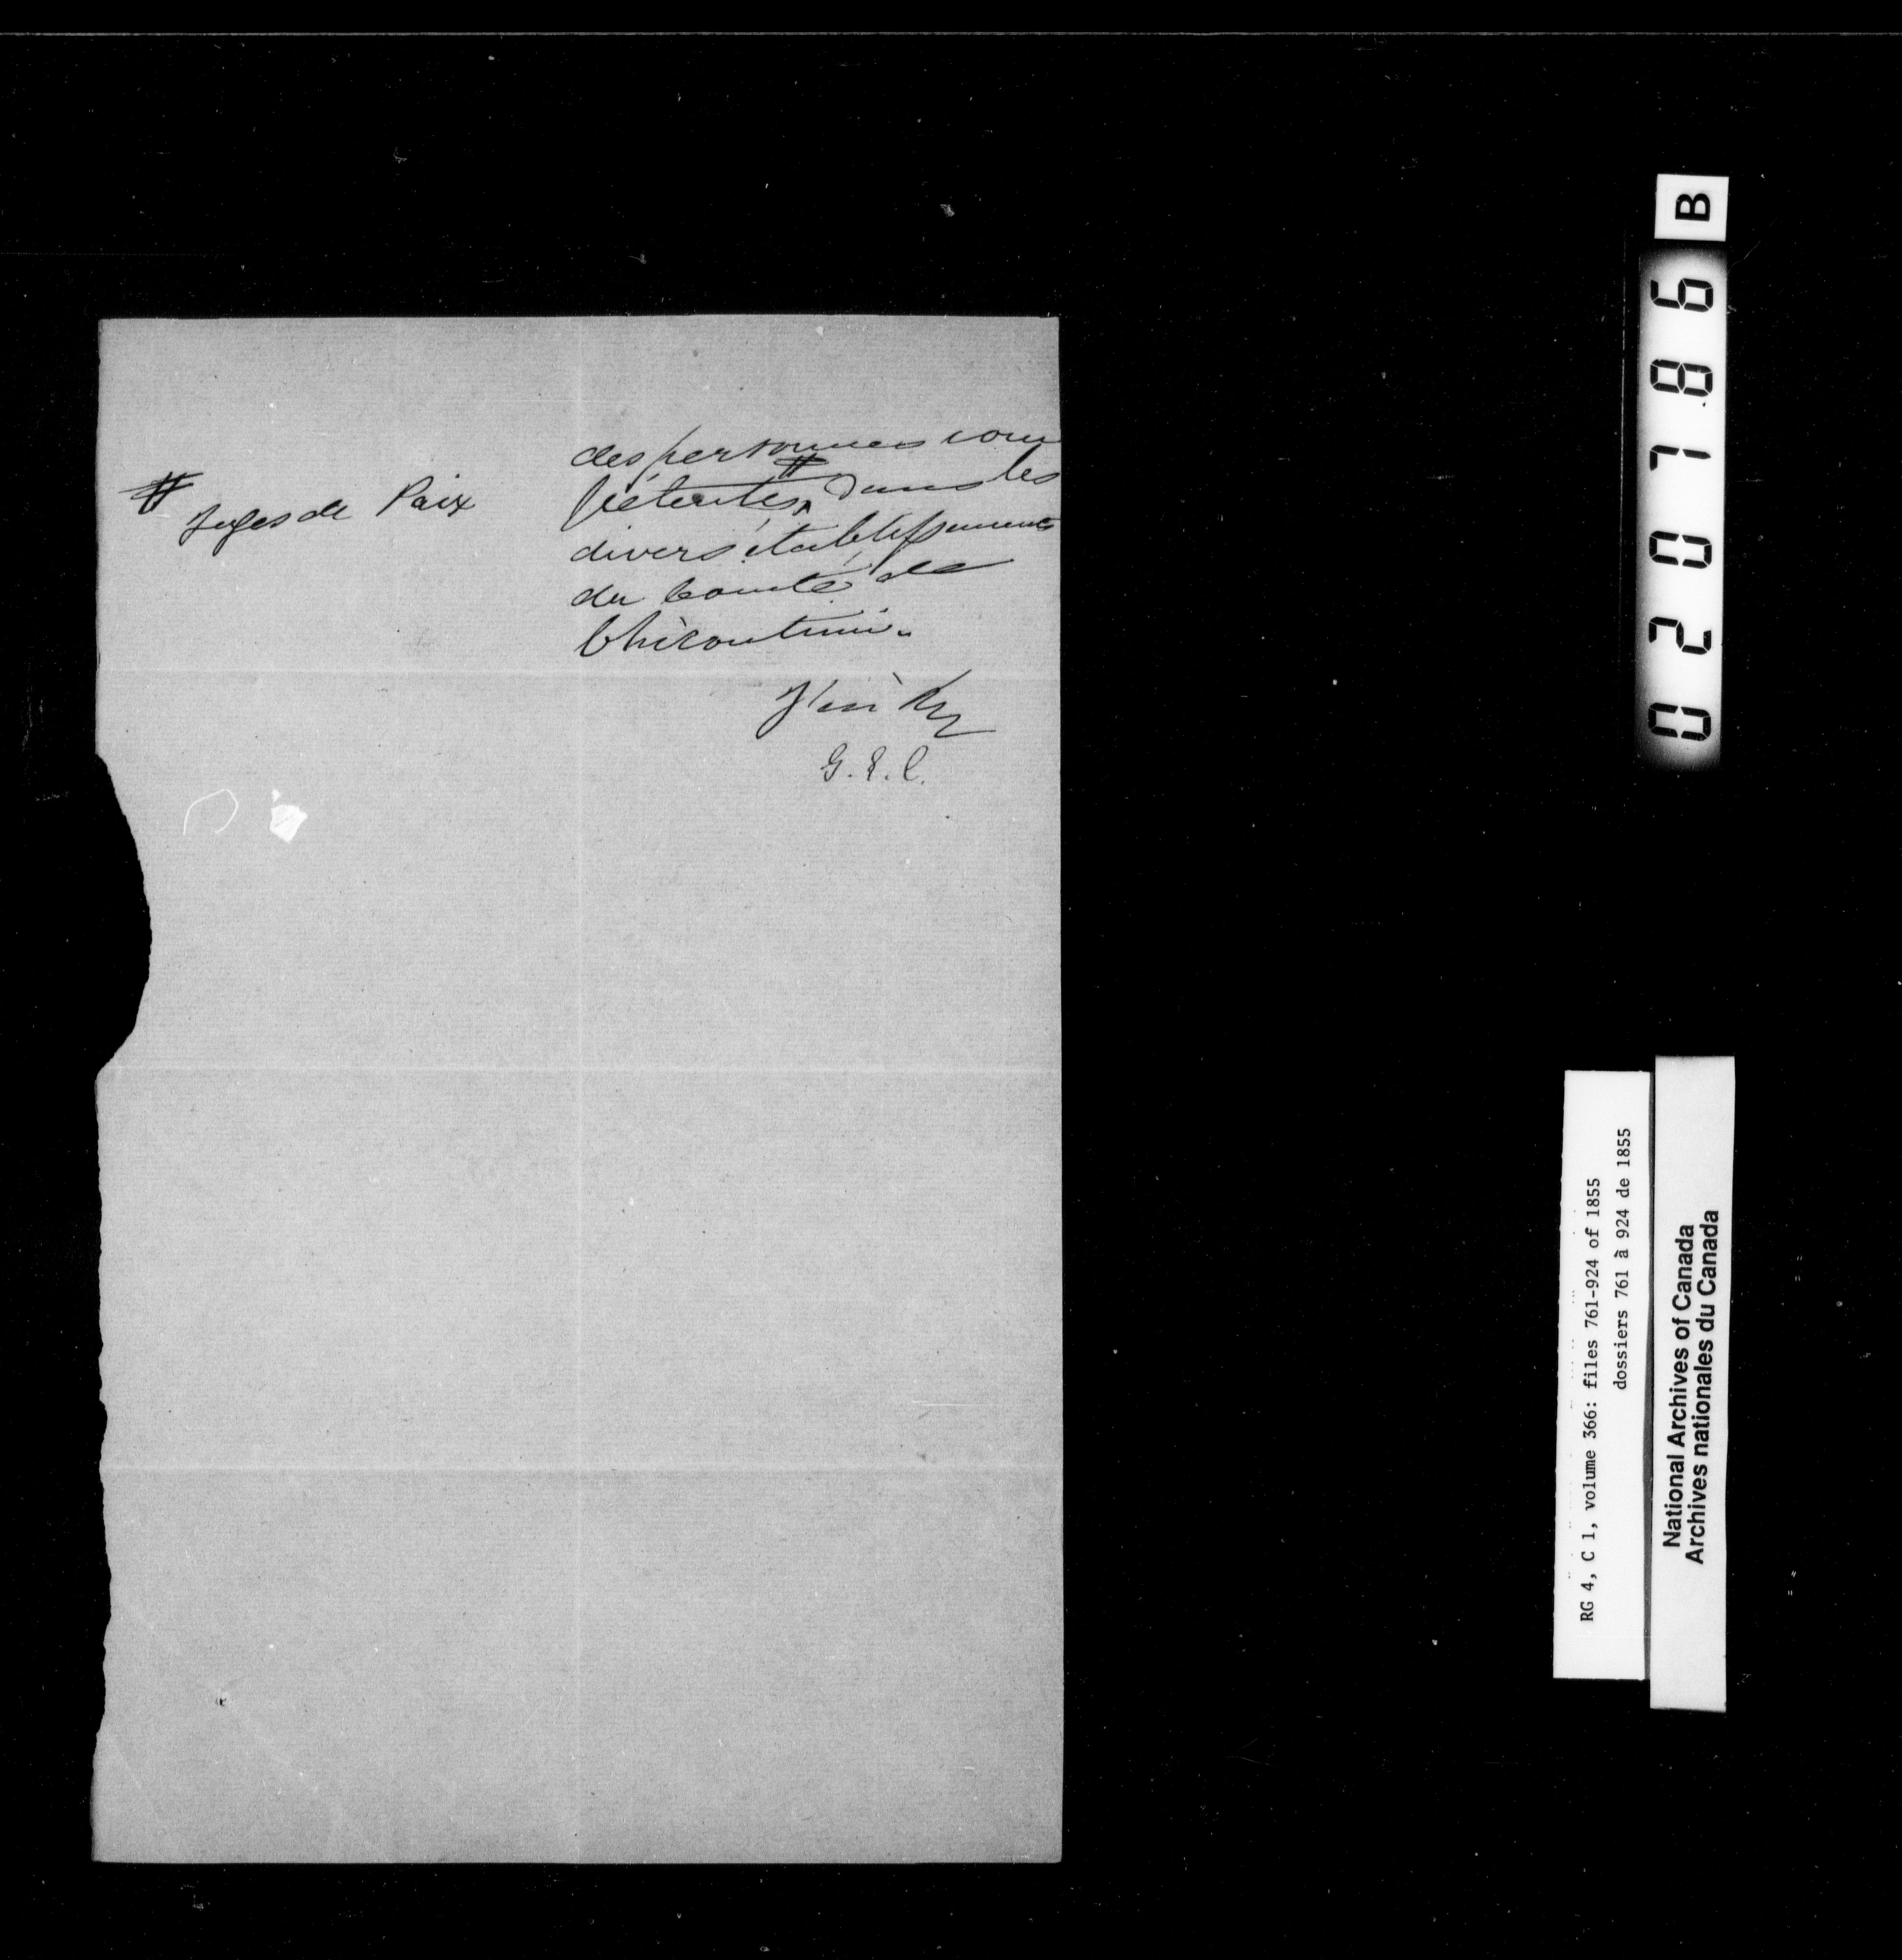 des personnes com
pétentes ⁂ dans les
divers établissements
du Comté de
Chicoutimi.
# Juges de Paix
G. E. C.
B
020786
RG 4, C 1, volume 366: files 761-924 of 1855
dossiers 761 à 924 de 1855
National Archives of Canada
Archives nationales du Canada